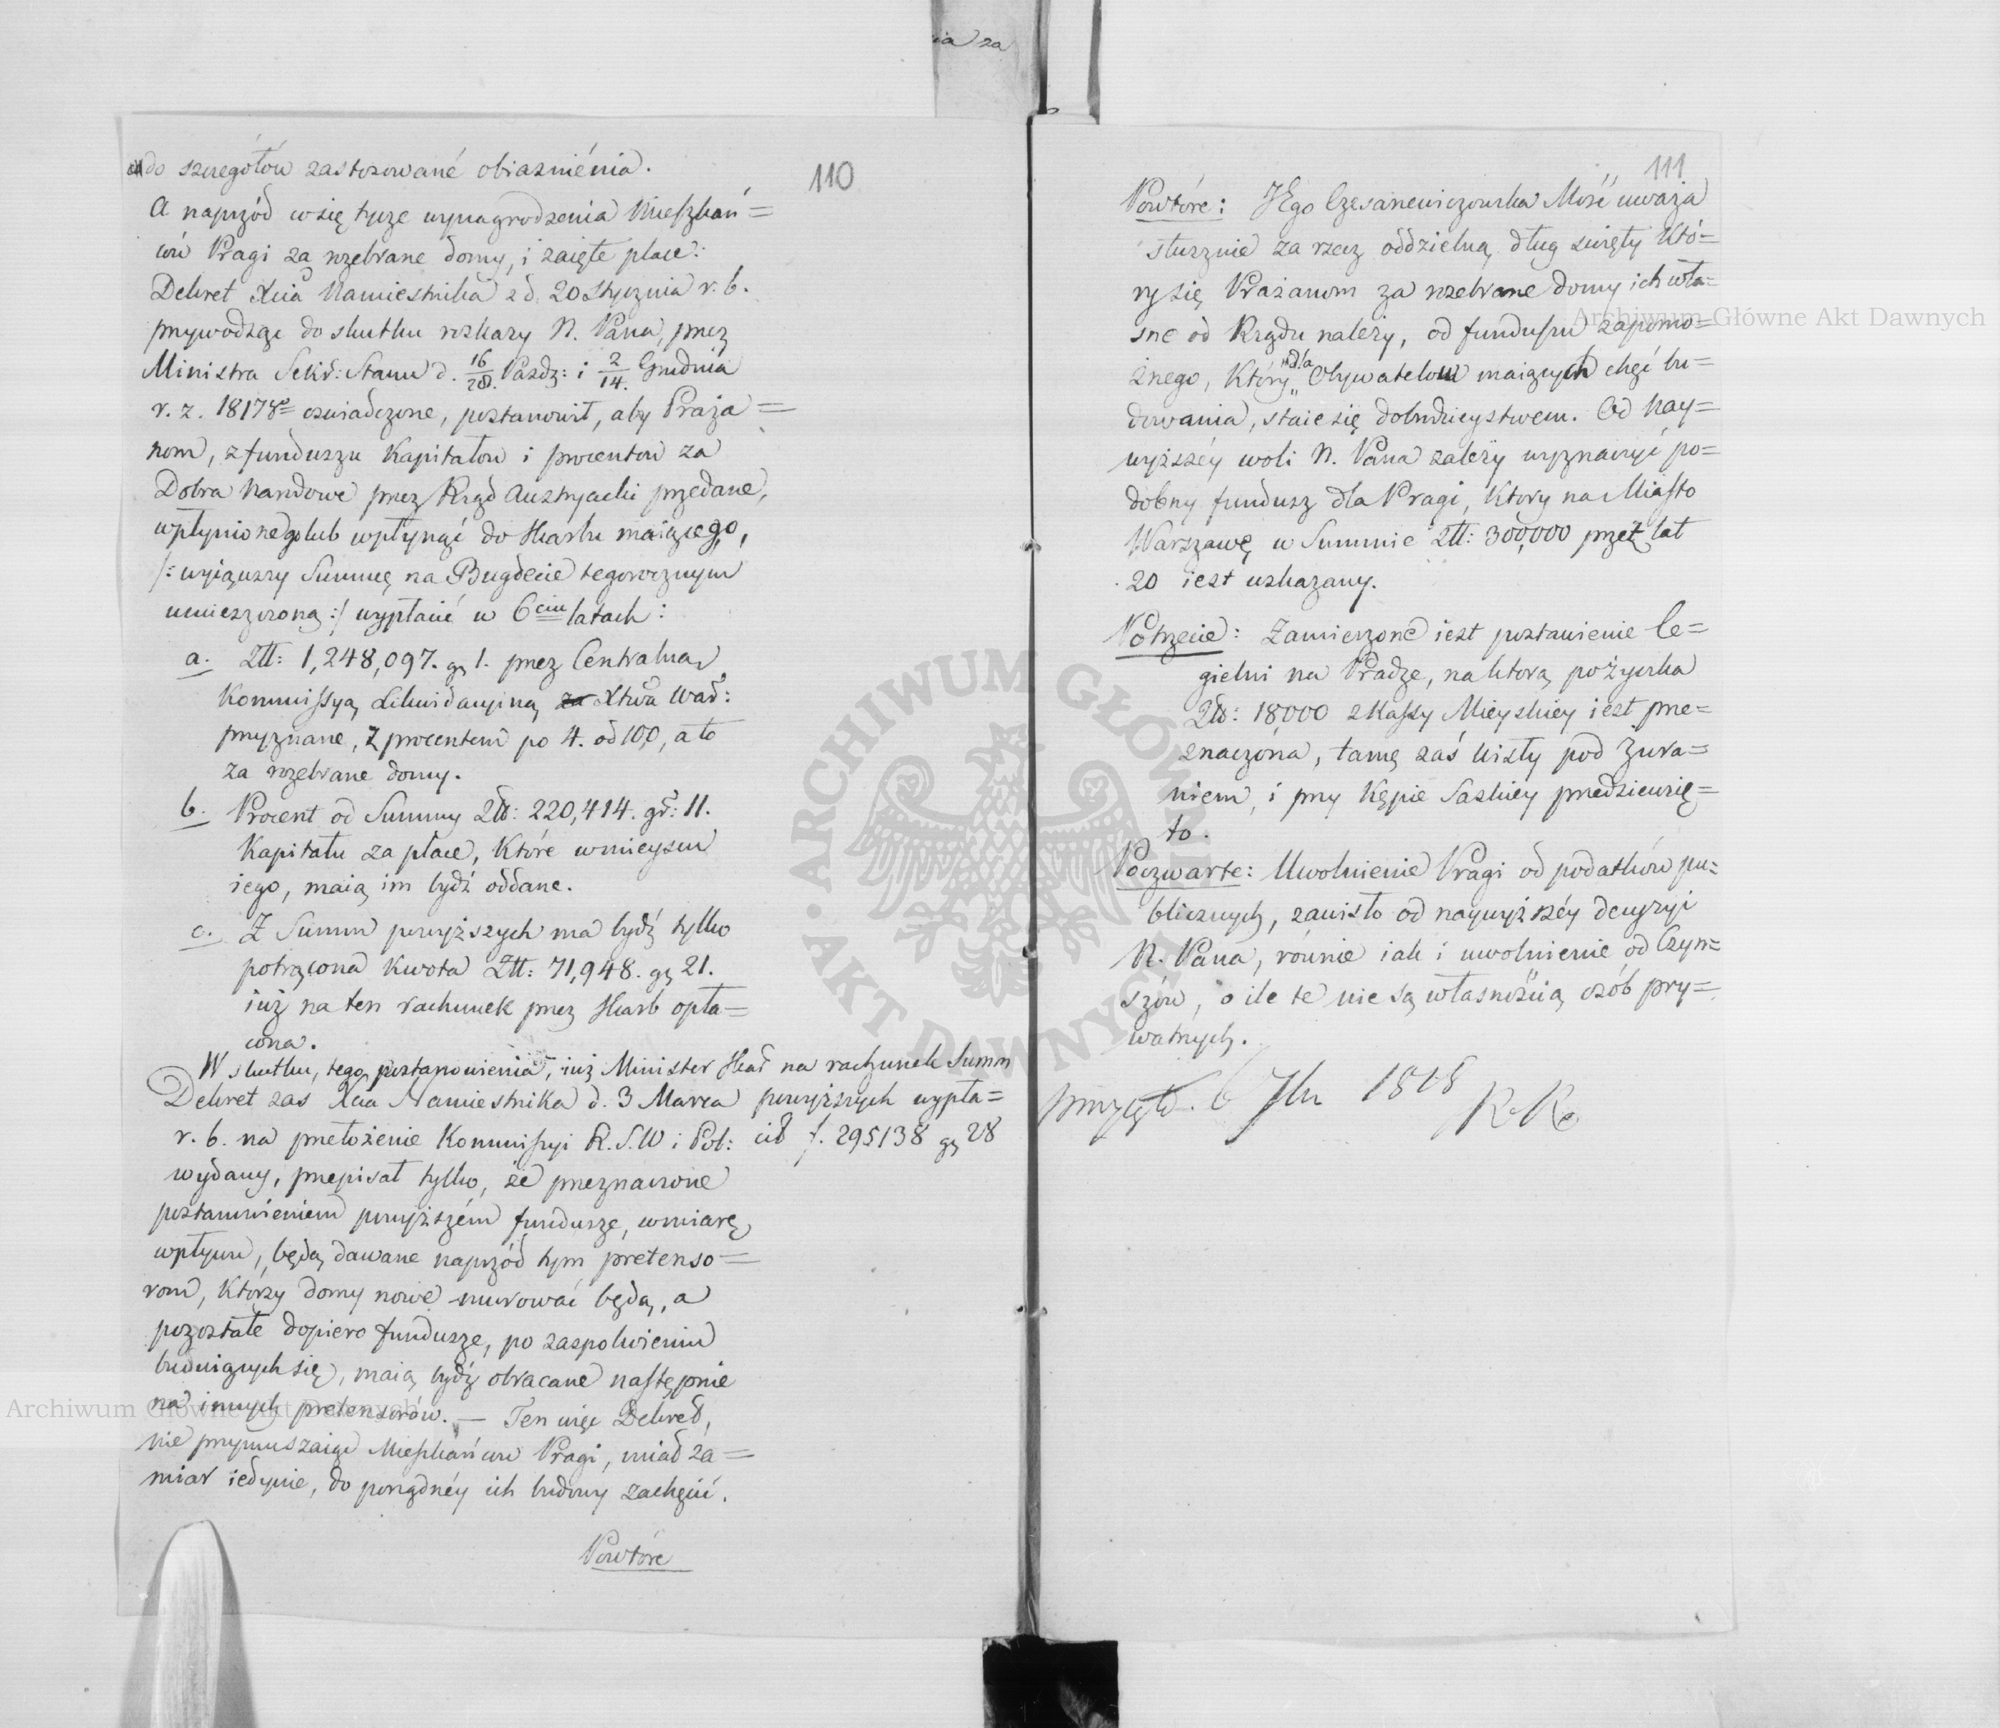 ia za
110
do szczegółów zastosowané obiasniénia.
A naprzód co się tycze wynagrodzenia Mieszkań=
ców Pragi za rozebrane domy, i zaięte place:
Dekret Xcia Namiestnika z d. 20 Stycznia r. b.
przywodząc do skutku rozkazy N. Pana, przez
Ministra Sekr: Stanu d. 16/28. Paźdz: i 2/14. Grudnia
r. z. 1817go oswiadczone, postanowił, aby Praża=
nom, z funduszu Kapitałow i procentow za
Dobra Narodowe przez Rząd Austryacki przedane,
wpłynionego lub wpłynąć do Skarbu maiącego,
/: wyiąwszy Summę na Bugdecie tegorocznym
umieszczoną :/ wypłacić w 6ciu latach:
a. Złł: 1,248,097. gr 1. przez Centralną
Kommissyą Likwidacyiną Xtwa War:
przyznane, z procentem po 4. od 100, a to
za rozebrane domy.
b. Procent od Summy Złł: 220,414. gr: 11.
Kapitału za place, które w mieysцu
iego, maią im bydź oddane.
c. Z Summ powyższych ma bydź tylko
potrącona kwota Złł: 71,948. gr 21.
iuż na ten rachunek przez Skarb opła=
cona.
W skutku tego postanowienia, iuż Minister Skar na rachunek Summ
powyższych wypła=
cił f. 295138 gr 28
Dekret zas Xcia Namiestnika d. 3 Marca
r. b. na przełożenie Kommissyi R. S. W i Pol:
wydany, przepisał tylko, że przeznaczone
postanowieniem powyższém fundusze, w miarę
wpływu, będą dawane naprzód tym pretenso=
rom, którzy domy nowe murować będą, a
pozostałe dopiero fundusze, po zaspokoieniu
buduiących się, maią bydź obracane następnie
na innych pretensorów. — Ten więc Dekret,
nie przymuszaiąc Mieszkańców Pragi, miał za=
miar iedynie, do porządnéy ich budowy zachęcić.
Powtóre
111
Powtóre: JEgo Cesarzewiczowska Mość uważa
słusznie za rzecz oddzielną dług święty któ=
ry się Prażanom za rozebrane domy ich wła=
sne od Rządu należy, od funduszu zapomo=
żnego, który dla Obywatelow maiących chęć bu=
dowania, staie się dobrodzieystwem. Od nay=
wyższéy woli N. Pana zależy wyznaczyć po=
dobny fundusz dla Pragi, ktory na Miasto
Warszawę w Summie Złł: 300,000 przez lat
20 iest wskazany.
Potrzecie: Zamierzone iest postawienie Ce=
gielni na Pradze, na którą pożyczka
Złł: 18000 z Kassy Mieyskiey iest prze=
znaczona, tamę zaś Wisły pod Żura=
niem, i przy Kępie Saskiey przedsięwzię=
to.
Poczwarte: Uwolnienie Pragi od podatków pu=
blicznych, zawisło od naywyższéy decyzyi
N. Pana, równie iak i uwolnienie od Czyn=
szów, o ile te nie są własnością osób pry=
watnych.
1818